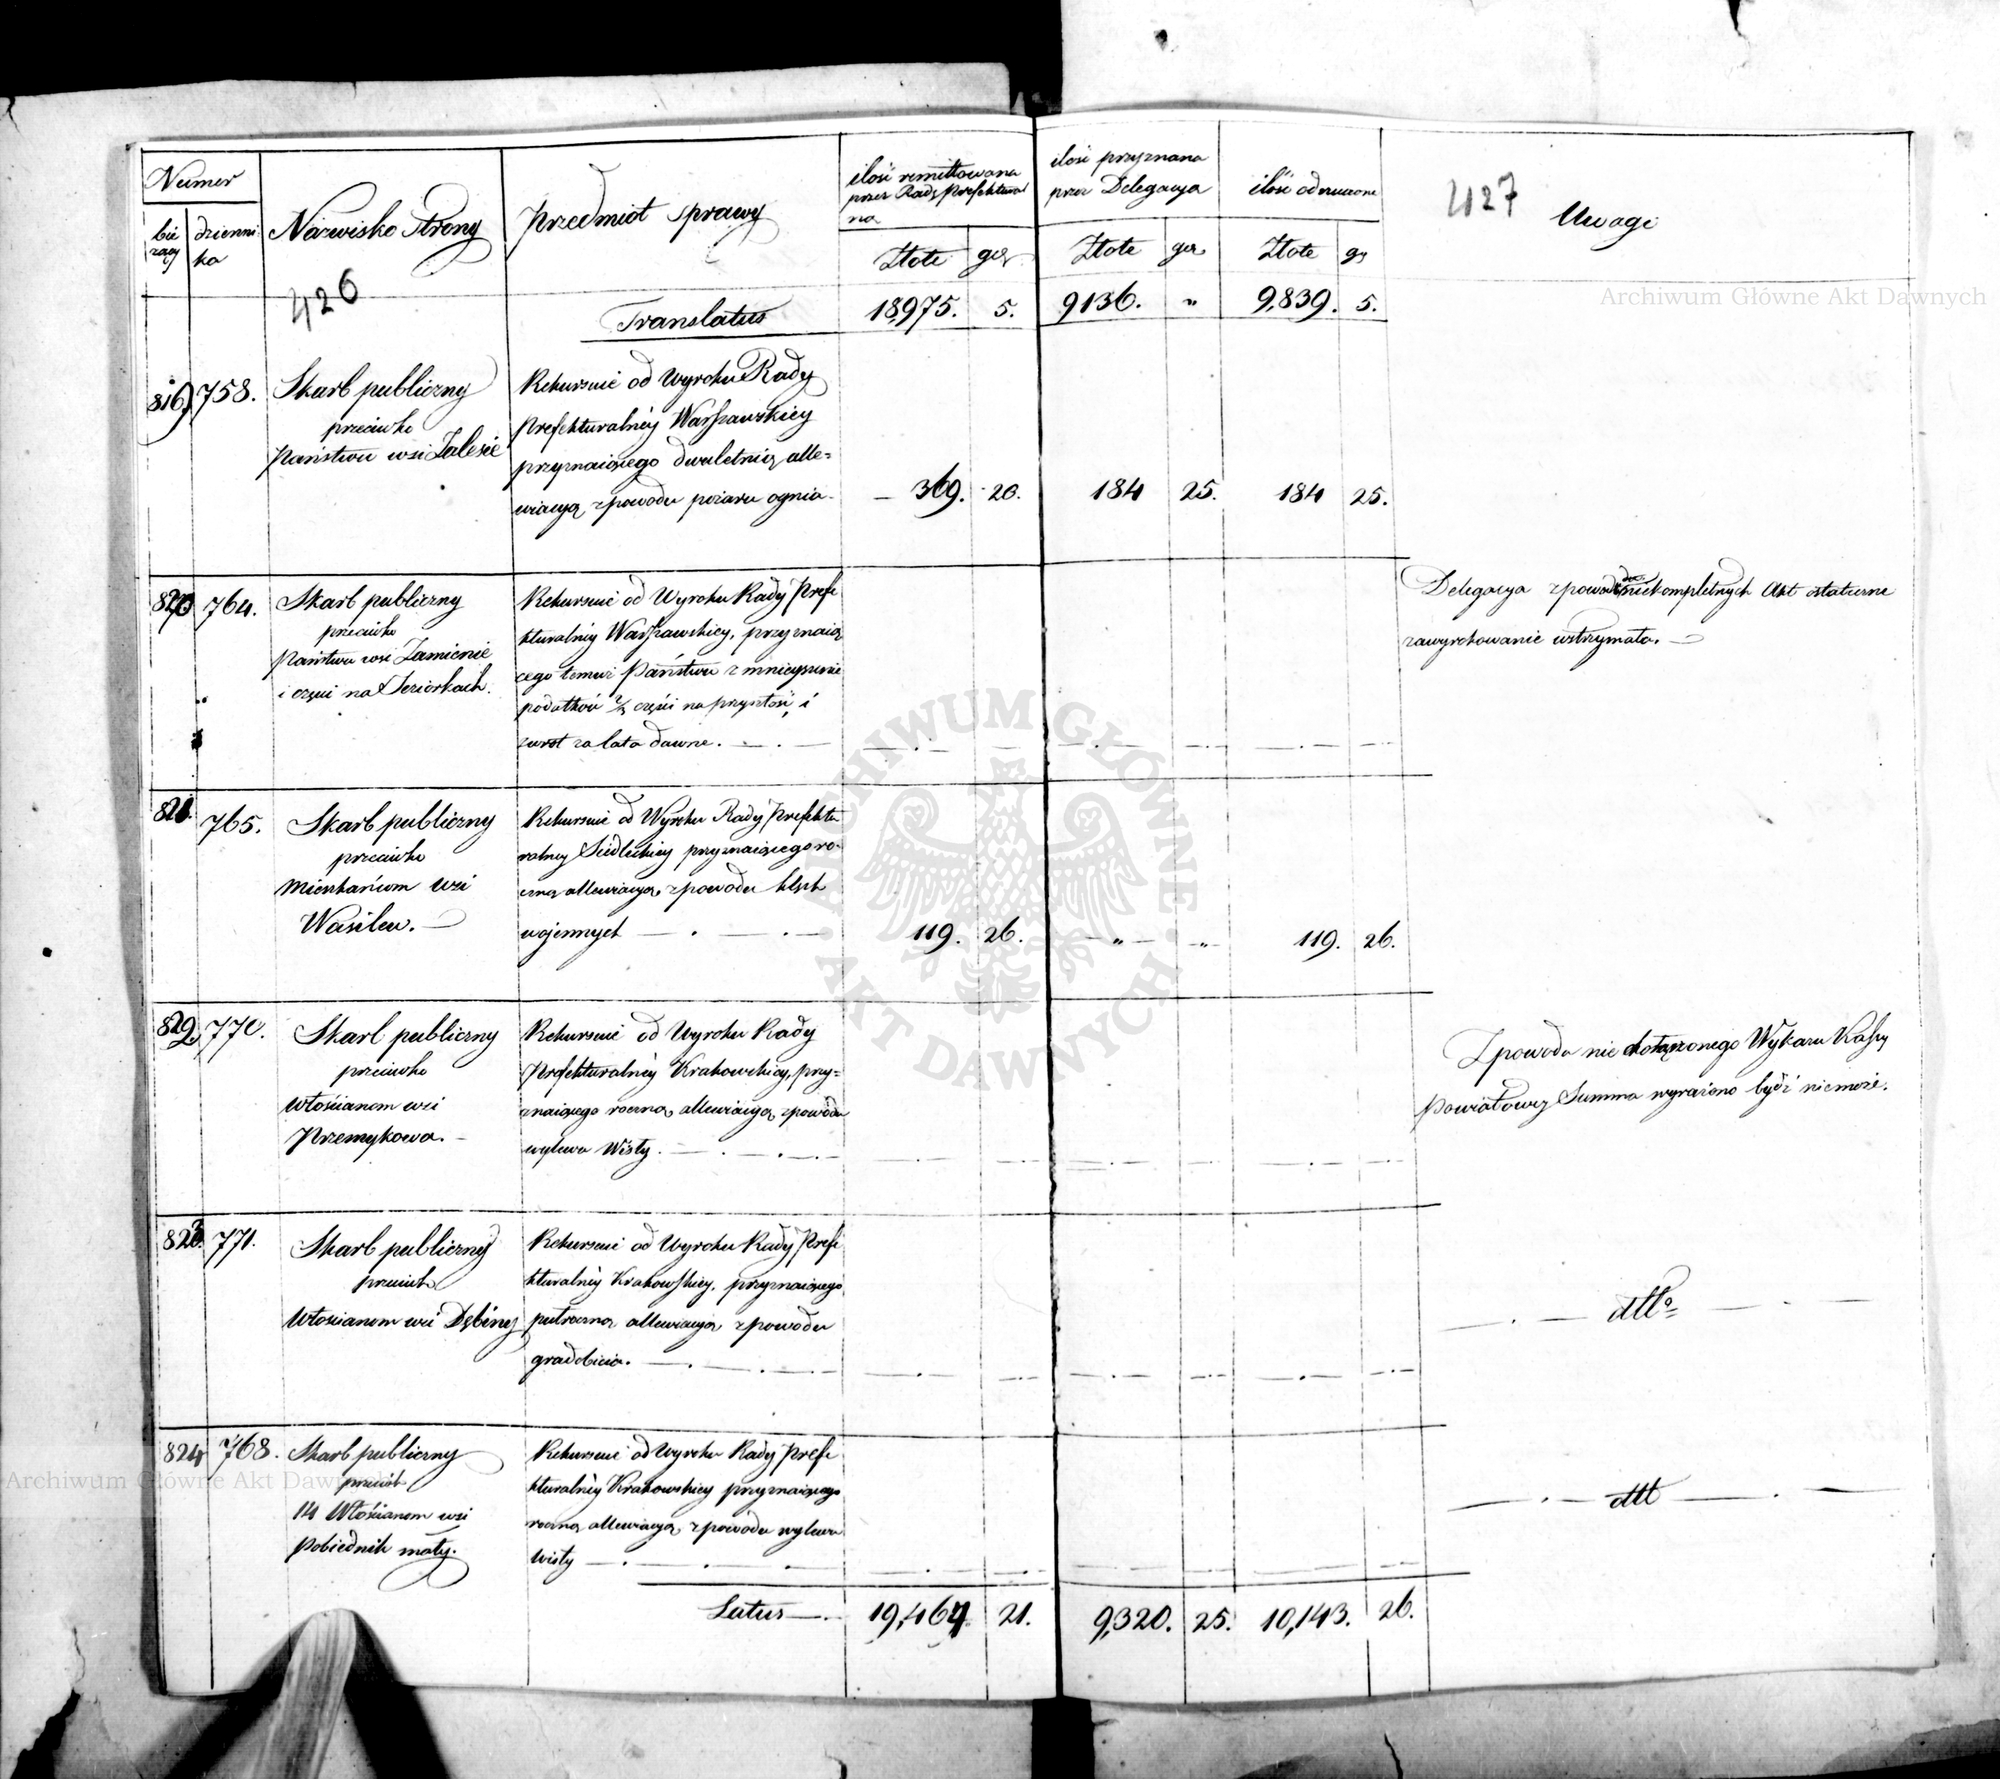 Numer
bie
rzący
dzienni
ka
Nazwisko Strony
426
Przedmiot sprawy
ilość remittowana
przez Radę Prefektural
na
Złote
gr
ilość przyznana
przez Delegacyą
Złote
gr
ilość odrzucona
Złote
gr
427
Uwagi
Translatus 18,975. 5. 9136. " 9,839. 5.
819) 758. Skarb publiczny
przeciwko
Państwu wsi Zalesie
Rekursuie od Wyroku Rady
Prefekturalnéy Warszawskiey
przyznaiącego dwuletnią alle=
wiacyą z powodu pożaru ognia
369. 20. 184 25. 184 25.
820 764. Skarb publiczny
przeciwko
Państwu wsi Zamienie
i części na Jeziorkach.
Rekursuie od Wyroku Rady Prefe
kturalnéy Warszawskiey, przyznaią
cego temuż Państwu zmnieyszenie
podatków 2/3 części na przyszłość, i
zwrot za lata dawne.
Delegacya z powodu niekompletnych Akt ostateczne
zawyrokowanie wstrzymała.
821. 765. Skarb publiczny
przeciwko
Mieszkańcom wsi
Wasilew.
Rekursuie od Wyroku Rady Prefektu
ralney Siedleckiey przyznaiącego ro=
czną allewiacyą, z powodu klęsk
wojennych
119. 26. " " 119. 26.
822. 770. Skarb publiczny
przeciwko
Włościanom wsi
Przemykowa.
Rekursuie od Wyroku Rady
Prefekturalnéy Krakowskiey, przy=
znaiącego roczną allewiacyą, z powodu
wylewu Wisły.
Z powodu nie dołączonego Wykazu Kassy
Powiatowey Summa wyrażono bydź niemoże.
823. 771. Skarb publiczny
przeciwko
Włościanom wsi Dębiny
Rekursuie od Wyroku Rady Prefe
kturalnéy Krakowskiey, przyznaiącego
pułroczną allewiacyą z powodu
gradobicia.
dtto
824 768. Skarb publiczny
przeciwko
14 Włościanom wsi
Pobiednik mały.
Rekursuie od Wyroku Rady Prefe
kturalnéy Krakowskiey przyznaiącego
roczną allewiacyą, z powodu wylewu
Wisły
dtt
Latus 19,464 21. 9,320. 25. 10,143. 26.
Archiwum Główne Akt Dawnych
Archiwum Główne Akt Dawnych
ARCHIWUM GŁÓWNE
AKT DAWNYCH